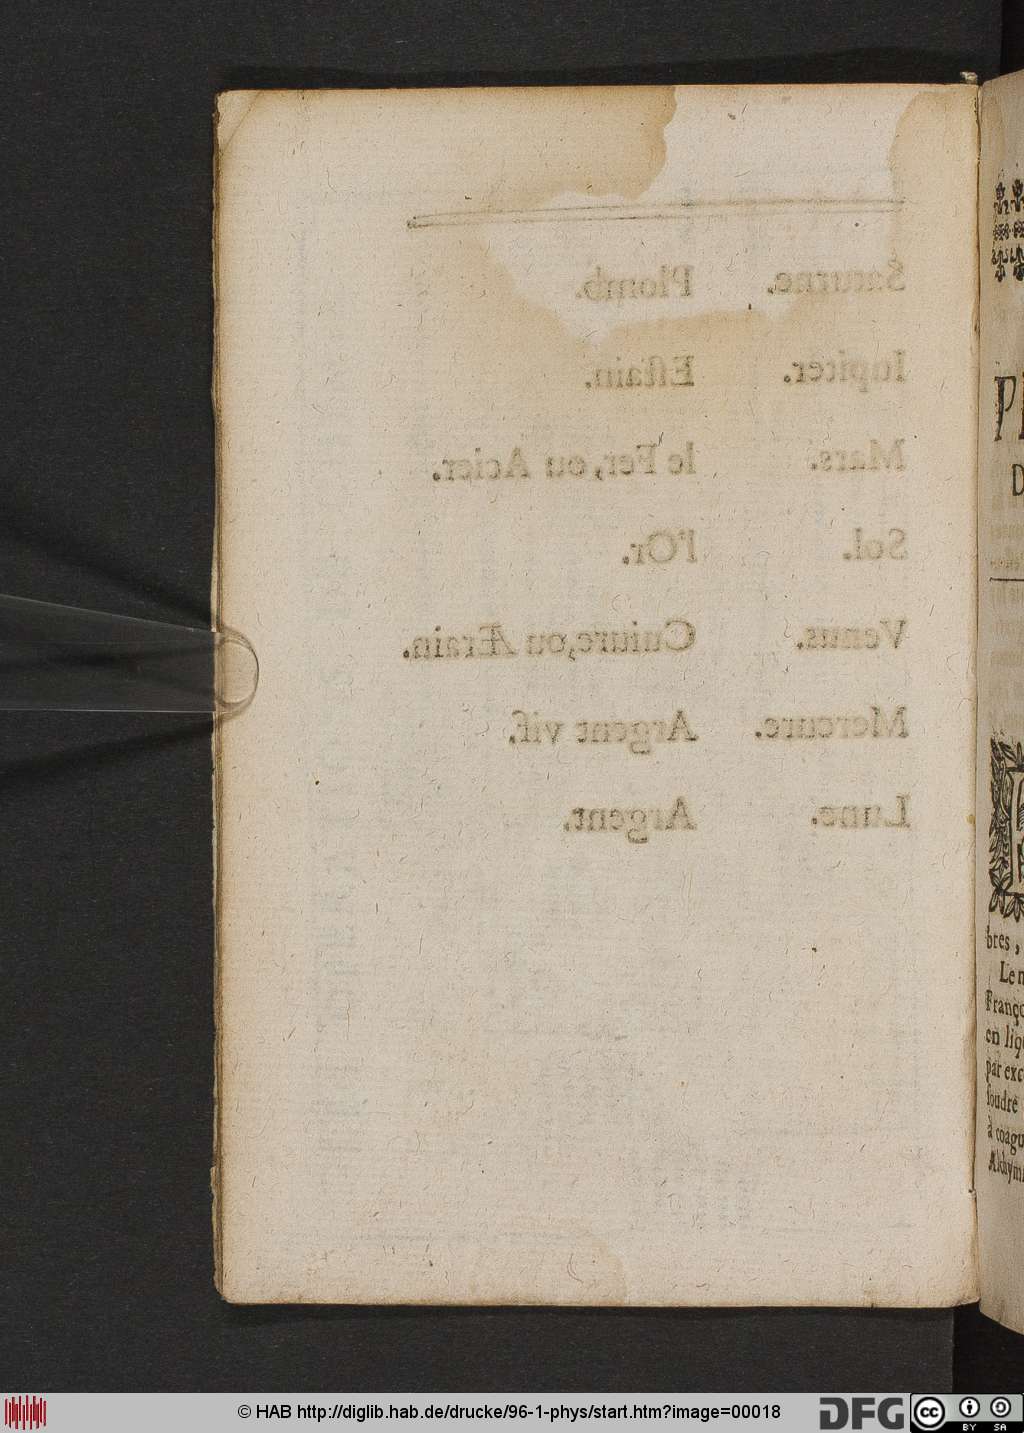 Saturne. Plomb.
Iupiter. Eſtain.
Mars. le Fer, ou Acier.
Sol. l'Or.
Venus. Cuiure, ou Ærain.
Mercure. Argent vif.
Lune. Argent.
bres,
Le
Franço
en liq
par exc
foudre
à coagu
Alchym
© HAB http://diglib.hab.de/drucke/96-1-phys/start.htm?image=00018
DFG
cc
BY SA